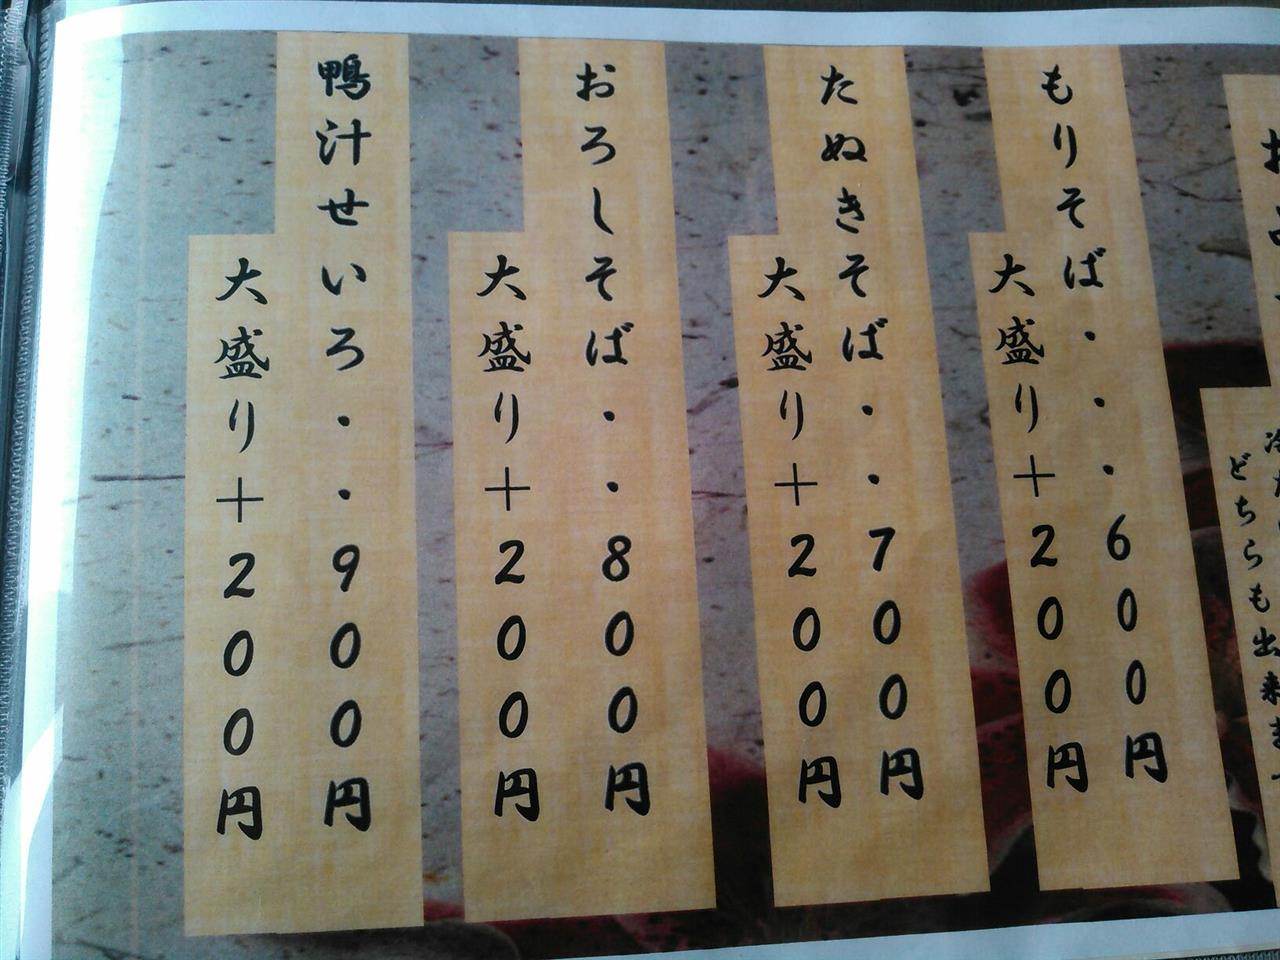 どちらも出来ま
もりそば・・・600円
大盛り＋200円
たぬきそば・・700円
大盛り＋200円
おろしそば・・800円
大盛り＋200円
鴨汁せいろ・・900円
大盛り＋200円